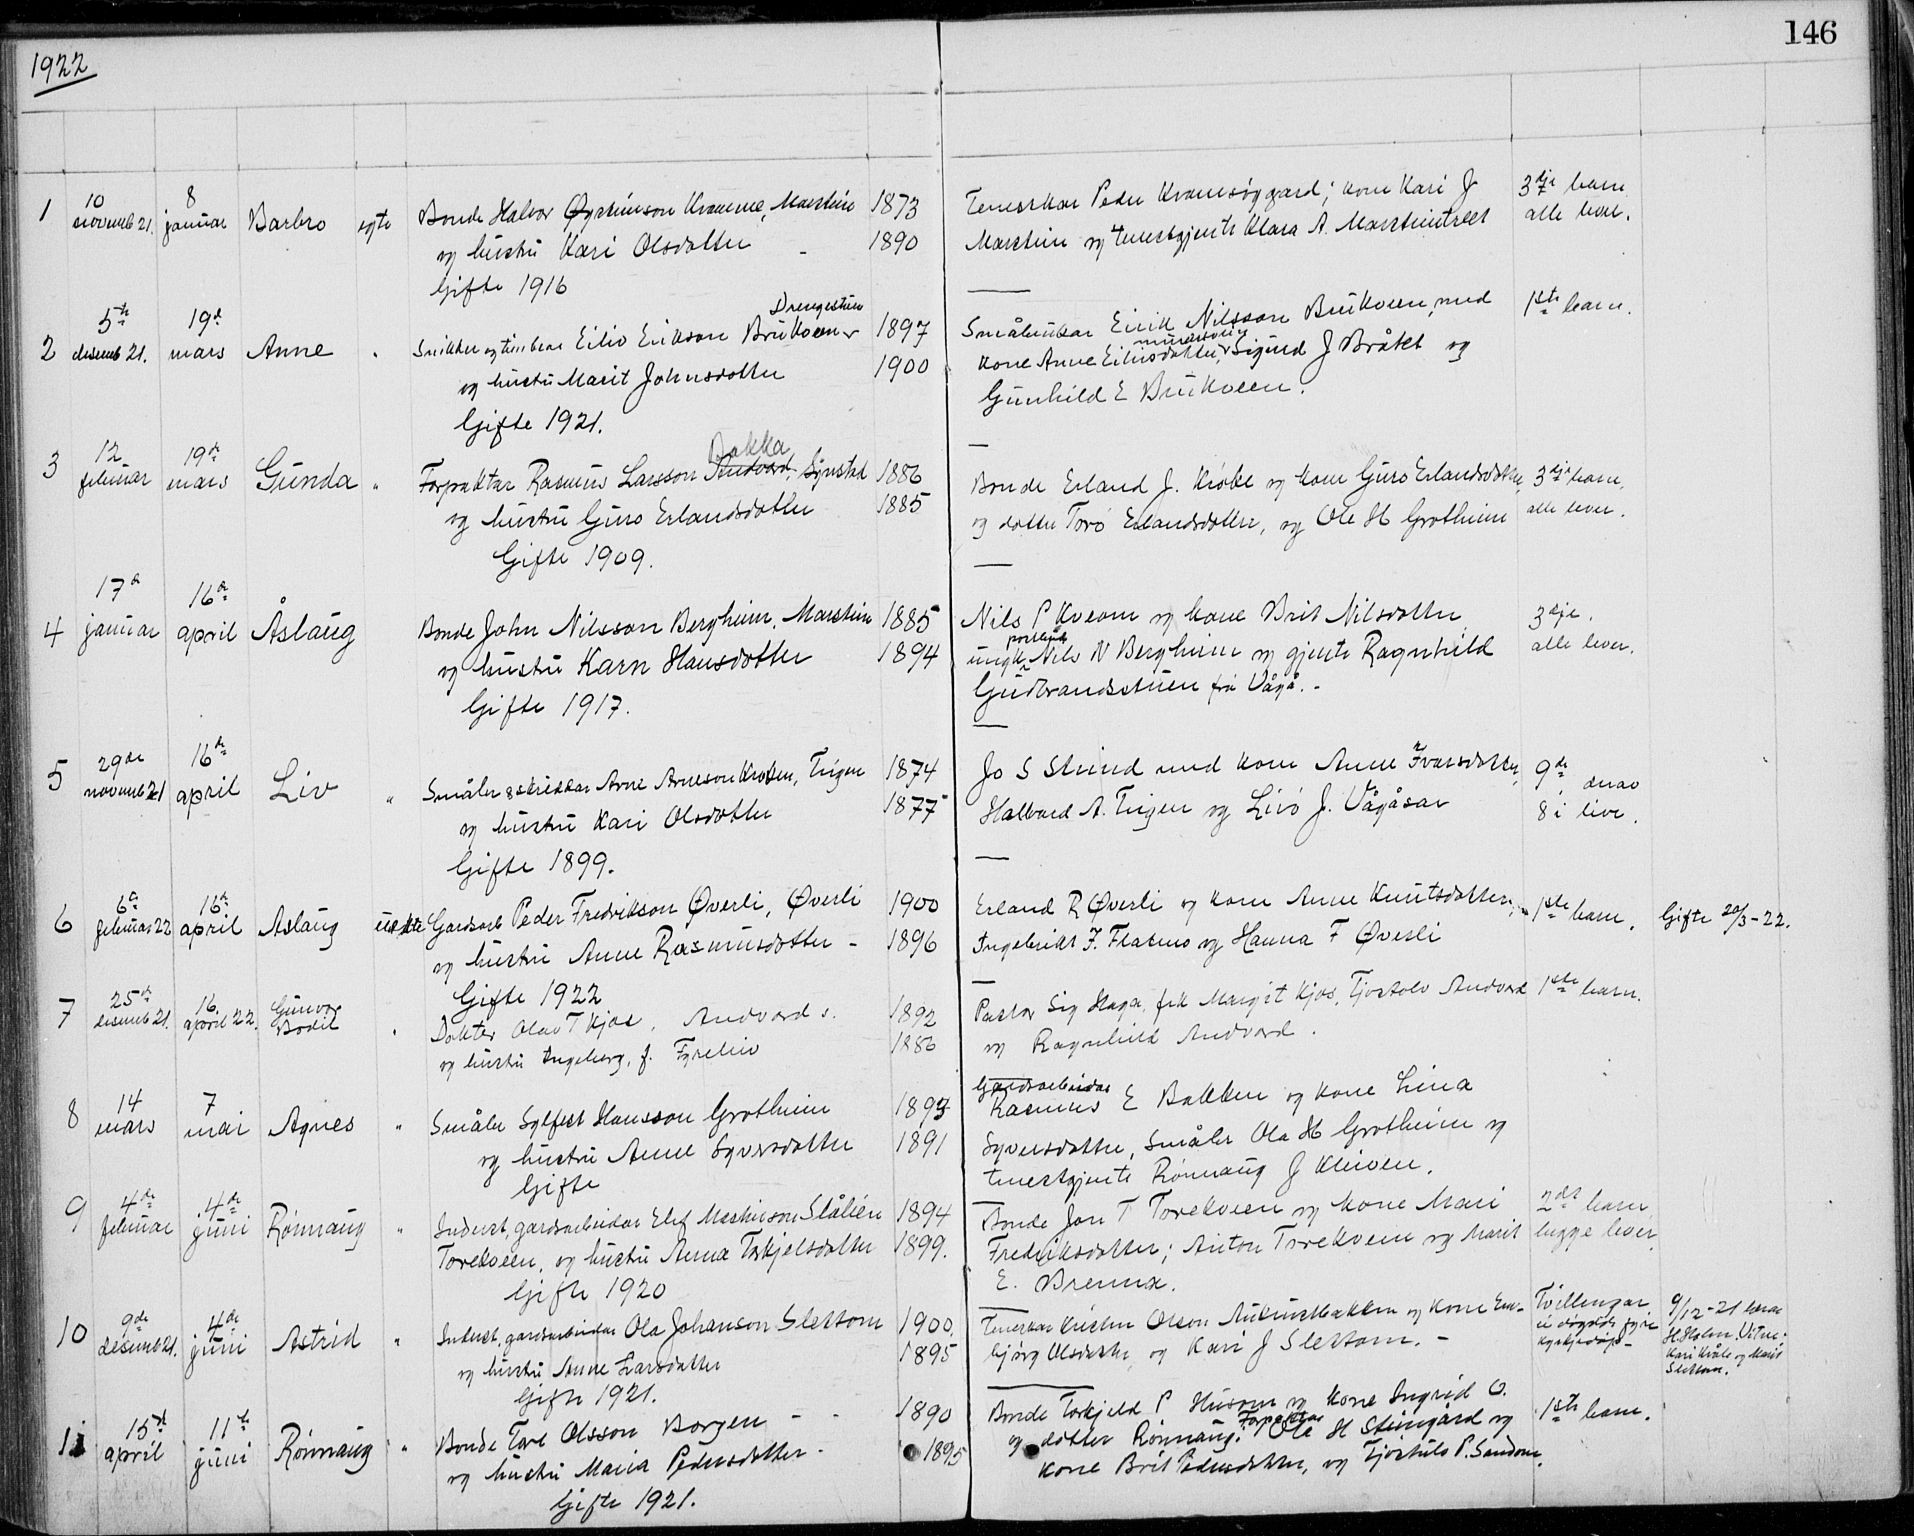 1922
146
1 10 novemb 21. 8 januar Barbro egte Bonde Halvor Øysteinson Kramme, Marstein 1873 Peder Kramsøygard; kone Kari J 3dje barn
og hustru Kari Olsdatter 1890 Marstein og tenestgjente Klara A. Marsteintræet alle lever.
Gifte 1916
Drengestuen
2 5te desemb 21. 19de mars Anne " Snikker og Eiliv Eirikson Brukveen 1897 Småbrukar Eirik Nilsson Brukveen med 1ste barn.
og hustru Marit Johnsdatter 1900 kone Anne Eilivsdatter, Sigurd J Bråtet og
Gifte 1921. Gunhild E Brukveen.
Bakka
3 12 februar 19de mars Gunda " Forpaktar Rasmus Larsson Andvord, Synstad 1886 Bonde Erland J. Kjøle og kone Guro Erlandsdotter, 3dje barn,
og hustru Guro Erlandsdotter 1885 og dotter Torø Erlandsdotter, og Ole H Grotheim alle lever.
Gifte 1909.
4 17de januar 16de april Åslaug Bonde John Nilsson Bergheim, Marstein 1885 Nils P Kveom og kone Brit Nilsdotter 3dje.
og hustru Karn Hansdotter 1894 ungk. Nils N Bergheim og gjente Ragnhild alle lever.
Gifte 1917. Gudbrandsstuen frå Vågå.
5 29de novemb 21 16de april Liv " Småbr & skreddar Arne Arneson Kroken, Trigen 1874 Jo S Strind med kone Anne Ivarsdotter, 9de, derav
og hustru Kari Olsdotter 1877 Halvard A. Trigen og Livø J. Vågåsar 8 i live.
Gifte 1899.
6 6te februar 22 16de april Aslaug uekte Gardsarb Peder Fredrikson Øverli, Øverli 1900 Erland R Øverli og kone Anne Knutsdotter, 1ste barn. Gifte 20/3-22.
og hustru Anne Rasmusdotter - 1896 Ingebrikt F. Flatmo og Hanna F Øverli
Gifte 1922
7 25de desemb 21. 16. april 22. Gunvor Bodil " Dokter Olav T Kjos, Andvord 1892 Pastor Sig Haga, frk Margit Kjos, Tjostolv Andvord 1ste barn.
og hustru Ingeborg, f. Fyreliv 1886 og Ragnhild Andvord.
Gardsarbeidar
8 14 mars 7 mai Agnes " Småbr Sylfest Hansson Grotheim 1893 Rasmus E Bakken og kone Lina
og hustru Anne Syversdotter 1891 Syversdotter, Småbr Ola H Grotheim og
Gifte tenestgjente Rønnaug J Kleiven.
9 4de februar 4de juni Rønnaug " Inderst, gardsarbeidar Elef Mathisson Slålien 1894 Bonde Jon T Torekveen og kone Mari 2det barn
Torekveen, og hustru Anna Torkjelsdotter 1899. Fredriksdotter; Anton Torekveen og Marit begge lever
Gifte 1920 E. Brenna.
10 9de desemb 21. 4de juni Astrid " Inderst, gardsarbeidar Ola Johanson Slettom 1900. Tenestkar Kristen Olson og kone Em- Tvillingar. 9/12-21
og hustru Anne Larsdotter 1895 bjørg Olsdotter og Kari J Slettom. - H. Holen. Vitne:
Gifte 1921. Kari Kvåle og Marit
Slettom.
11 15de april 11te juni Rønnaug " Bonde Tore Olsson Borgen - 1890 Bonde Torkjeld P Husom og kone Ingrid O. 1ste barn.
og hustru Maria Pedersdotter - 1895 og dotter Rønnaug. Forpaktar Ole H Steingard og
Gifte 1921. kone Brit Pedersdotter, og Tjostulv P. Sandom.